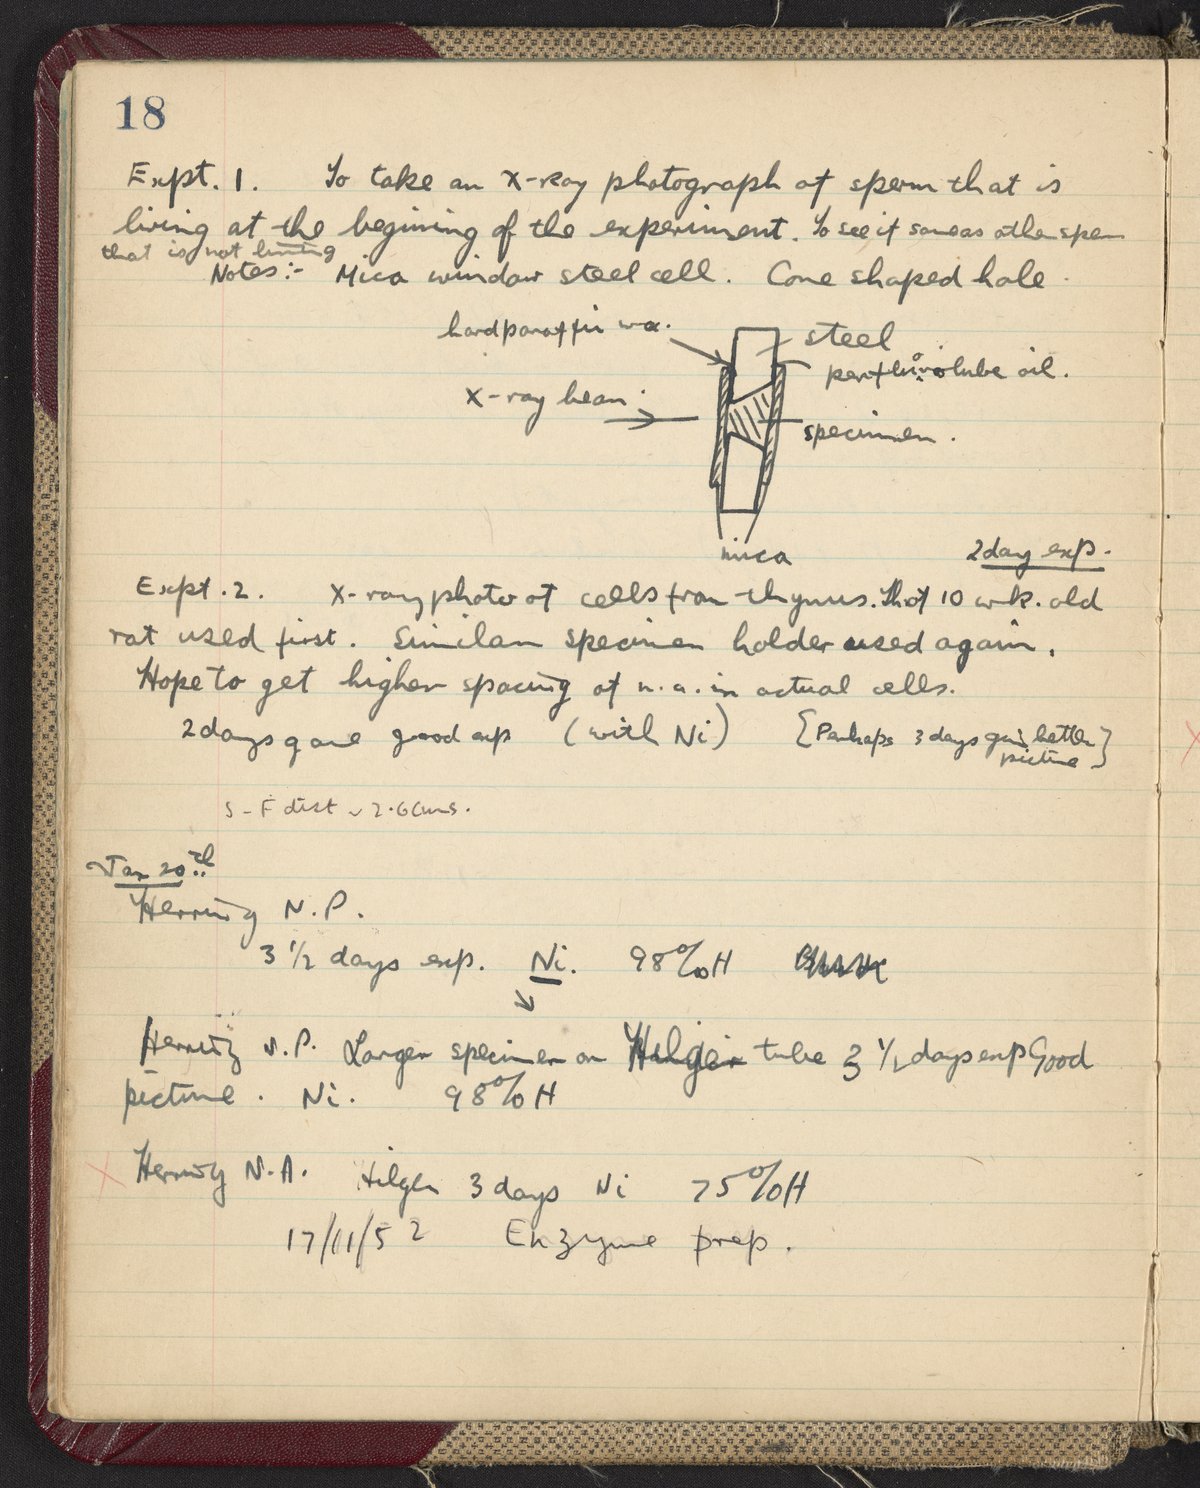 18
Expt. 1. To take an X-ray photograph of sperm that is
living at the begining of the experiment. To see if same as other sperm
that is not living
Notes:- Mica window steel cell. Cone shaped hole.
hard paraffin wax.
steel
perfluorolube oil.
X-ray beam.
specimen.
mica
2 day exp.
Expt. 2. X-ray photo of cells from thymus. That of 10 wk. old
rat used first. Similar specimen holder used again.
Hope to get higher spacing of n.a. in actual cells.
2 days gave good exp (with Ni) {Perhaps 3 days give better
picture}
S-F dist ~ 2.6 cms.
Jan 20th
Herring N.P.
3 1/2 days exp. Ni. 98% H
Herring N.P. Larger specimen on Hilger tube 3 1/2 days exp Good
picture. Ni. 98% H
X Herring N.A. Hilger 3 days Ni 75% H
17/11/52 Enzyme prep.